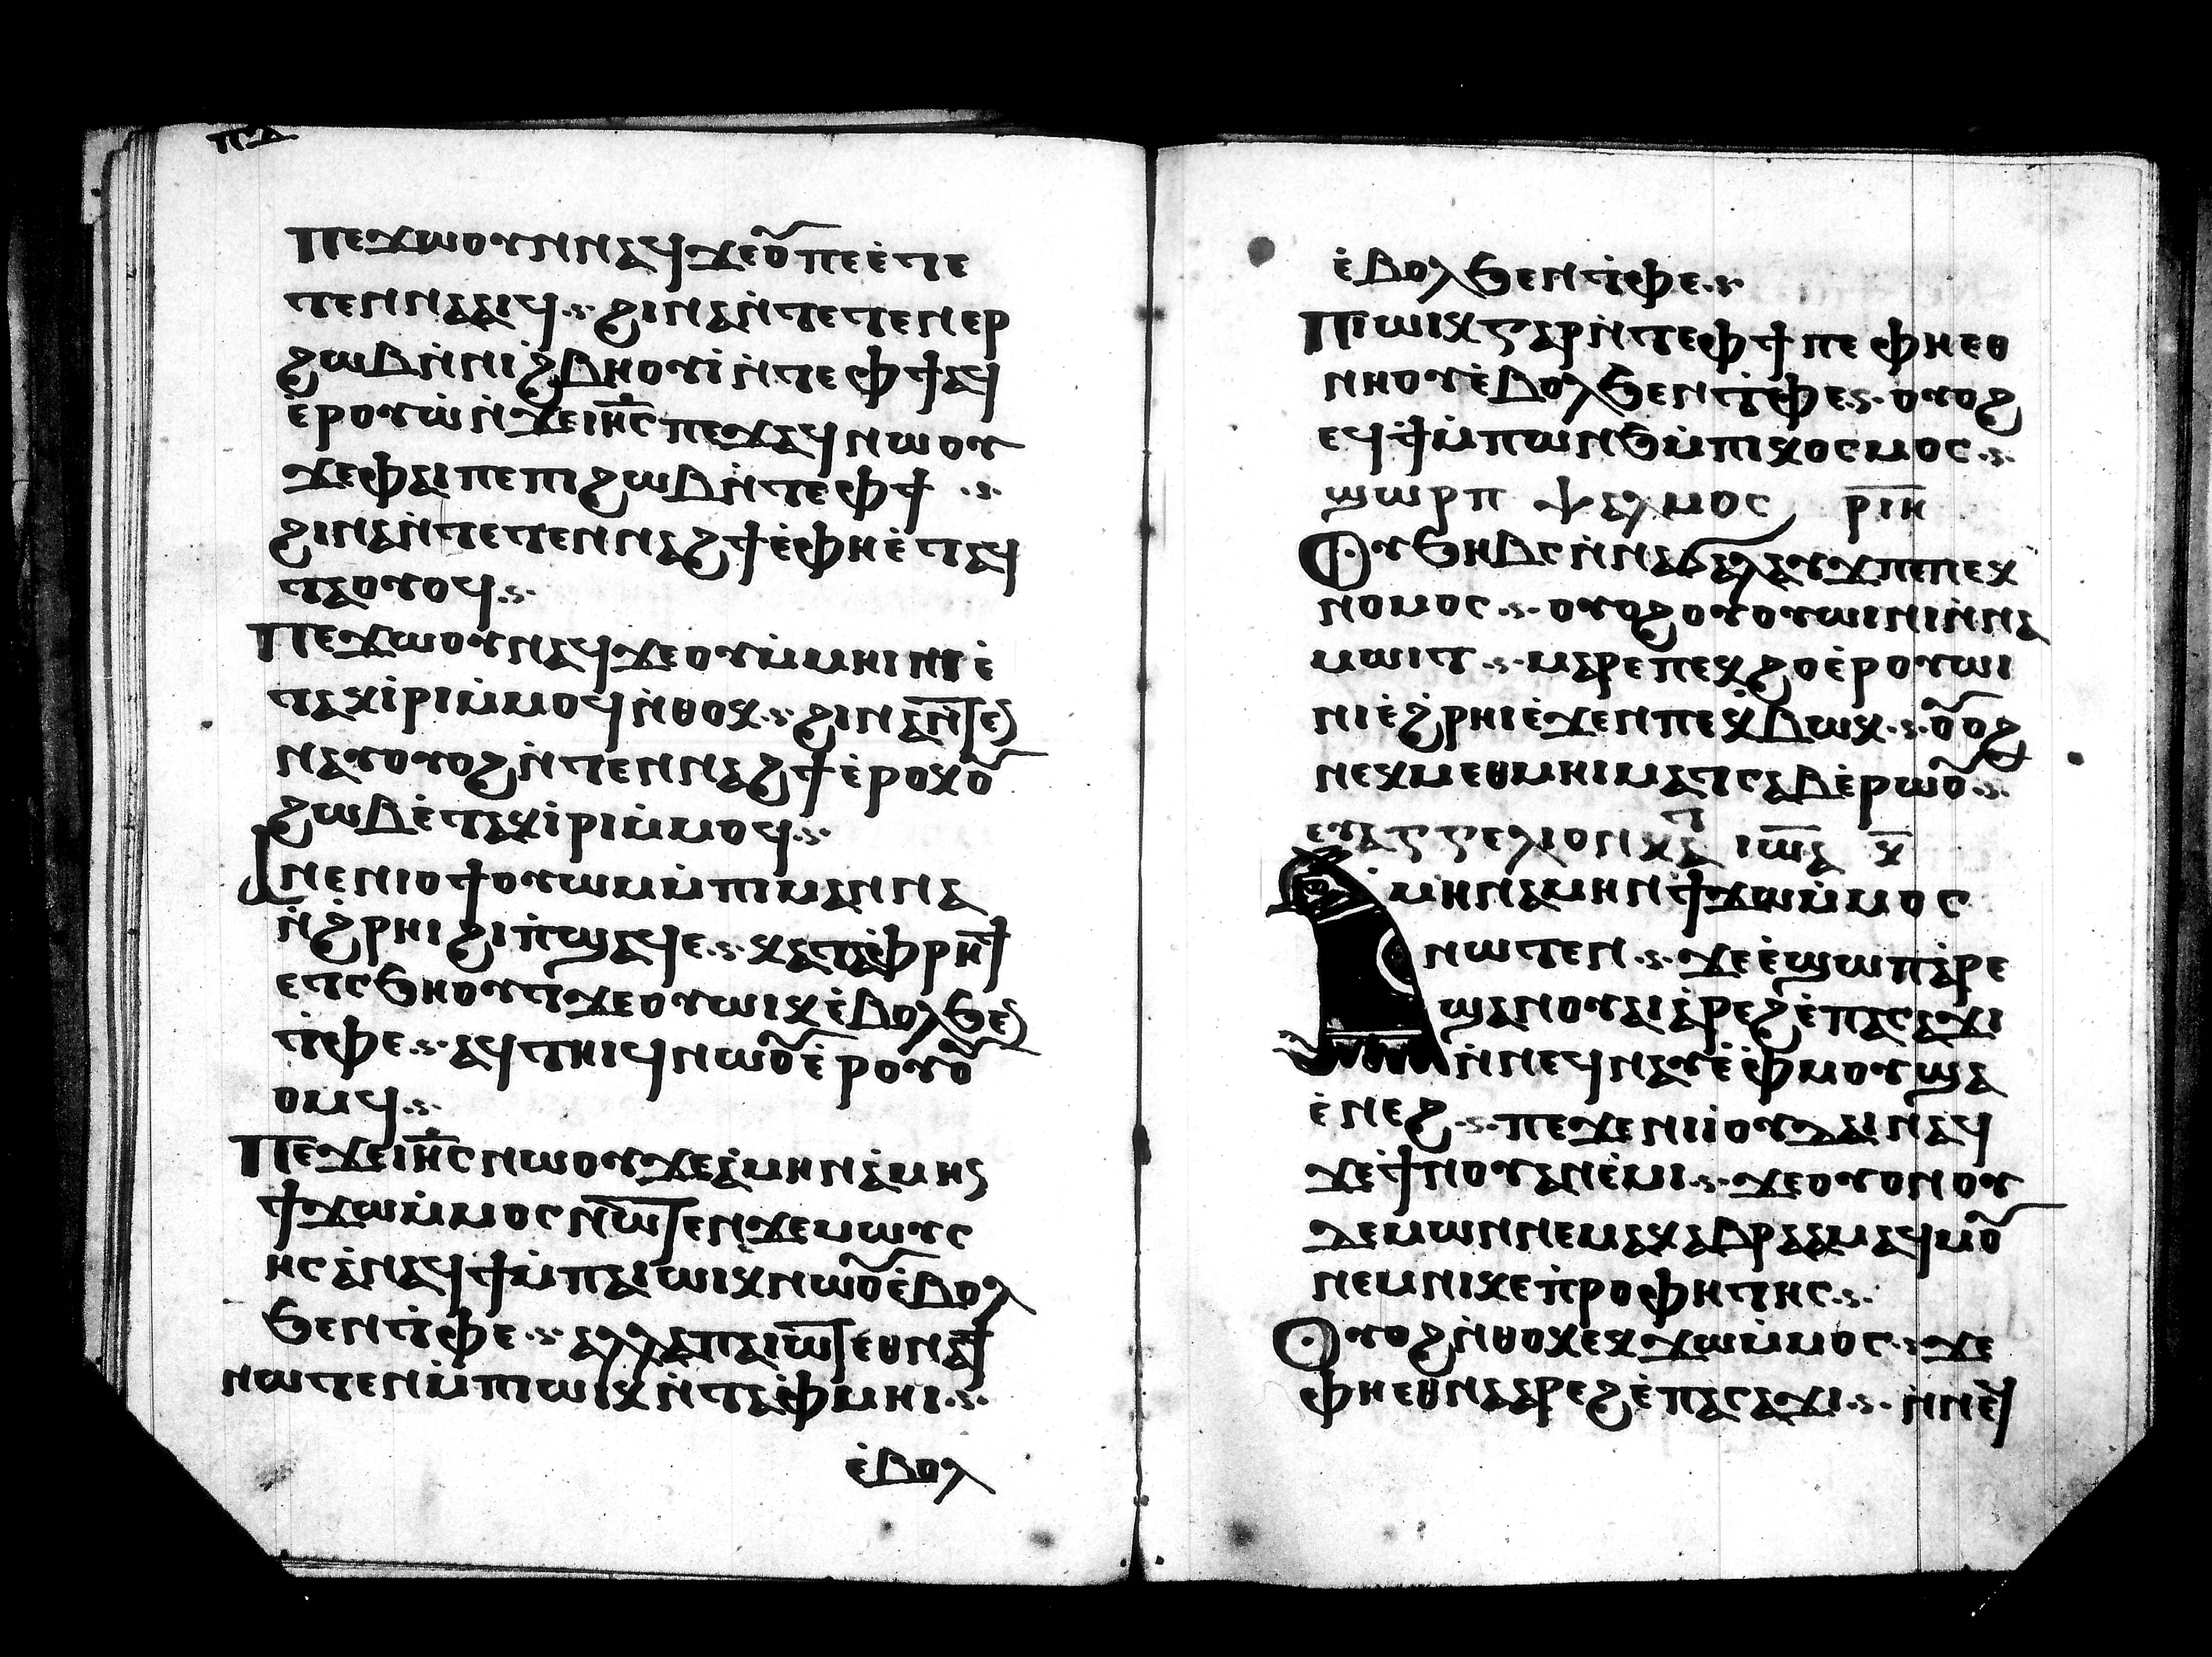 ⲡⲇ
ⲡⲉϫⲱⲟⲩⲛⲛⲁϥϫⲉⲟ︦ⲡⲉⲉ̀ⲧⲉ
ⲧⲉⲛⲛⲁⲁⲓϥ.ⲋ. ϩⲓⲛⲁⲛ̀ⲧⲉⲧⲉⲛⲉⲣ
ϩⲱⲃⲛ̀ⲛⲓϩ̀ⲃⲏⲟⲩⲓ̀ⲛ̀ⲧⲉⲫϯⲁϥ
ⲉ̀ⲣⲟⲩⲱ̀ⲛ̀ϫⲉⲓⲏ̅ⲥⲡⲉϫⲁϥⲛⲱⲟⲩ
ϫⲉⲫⲁⲓⲡⲉⲡⲓϩⲱⲃⲛ̀ⲧⲉⲫϯ .ⲋ.
ϩⲓⲛⲁⲛ̀ⲧⲉⲧⲉⲛⲛⲁϩϯⲉ̀ⲫⲏⲉ̀ⲧⲁϥ
ⲧⲁⲟⲩⲟϥ.ⲋ.
ⲡⲉϫⲱⲟⲩⲛⲁϥϫⲉⲟⲩⲙ̀ⲙⲏⲓⲛⲓⲉ̀
ⲧⲁⲕⲓ̀ⲣⲓⲙ̀ⲙⲟϥⲛ̀ⲑⲟⲕ.ⲋ. ϩⲓⲛⲁⲛ̅ⲧⲉ
ⲛⲁⲩⲟⲩⲟϩⲛ̀ⲧⲉⲛⲛⲁϩϯⲉ̀ⲣⲟⲕⲟ︦
ϩⲱⲃⲉ̀ⲧⲁⲕⲓ̀ⲣⲓⲙ̀ⲙⲟϥ.ⲋ.
ⲁⲛⲉⲛⲓⲟϯⲟⲩⲱⲙⲙ̀ⲡⲓⲙⲁⲛⲛⲁ
ⲛ̀ϩ̀ⲣⲏⲓϩⲓⲡ̀ϣⲁϥⲉ.ⲋ. ⲕⲁⲧⲁⲫ̀ⲣⲏϯ
ⲉⲧⲥϧⲏⲟⲩⲧϫⲉⲟⲩⲱⲓⲕⲉ̀ⲃⲟⲗϧⲉ
ⲧ̀ⲫⲉ.ⲋ. ⲁϥⲧⲏⲓϥⲛⲱⲟ︦ⲉ̀ⲣⲟⲩⲟ︦
ⲟⲙϥ.ⲋ.
ⲡⲉϫⲉⲓⲏ̅ⲥⲛⲱⲟⲩϫⲉⲁ̀ⲙⲏⲛⲁ̀ⲙⲏⲛ
ϯϫⲱⲙ̀ⲙⲟⲥⲛⲱ̅ⲧⲉⲛϫⲉⲙⲱⲩⲥ
ⲏⲥⲁ̀ⲛⲁϥϯⲙ̀ⲡⲁⲓⲱⲓⲕⲛⲱⲟ︦ⲉ̀ⲃⲟⲗ
ϧⲉⲛⲧ̀ⲫⲉ.ⲋ. ⲁⲗⲗⲁⲡⲁⲓⲱ̅ⲧⲉⲑⲛⲁϯ
ⲛⲱⲧⲉⲛⲙ̀ⲡⲓⲱⲓⲕⲛ̀ⲧⲁⲫ̀ⲙⲏⲓ.ⲋ.
ⲉ̀ⲃⲟⲗ
ⲉ̀ⲃⲟⲗϧⲉⲛⲧ̀ⲫⲉ.ⲋ
ⲡⲓⲱⲓⲕⲅⲁⲣⲛ̀ⲧⲉⲫϯⲡⲉ ⲫⲏⲉⲑ
ⲛⲏⲟⲩⲉ̀ⲃⲟⲗϧⲉⲛⲧ̀ⲫⲉ.ⲋ. ⲟⲩⲟϩ
ⲉϥϯⲙ̀ⲡⲱⲛϧⲙ̀ⲡⲓⲕⲟⲥⲙⲟⲥ.ⲋ.
ϣⲱⲣⲡ ⲯⲁⲗⲙⲟⲥ ⲣ̅ⲓ̅ⲏ̅
ⲟⲩϧⲏⲃⲥⲛ̀ⲛⲁϭⲁⲗⲁⲩϫⲡⲉⲡⲉⲕ
ⲛⲟⲙⲟⲥ.ⲋ. ⲟⲩⲟϩⲟⲩⲟⲩⲱⲓⲛⲓⲛ̀ⲛⲁ
ⲙⲱⲓⲧ.ⲋ. ⲙⲁⲣⲉⲡⲉⲕϩⲟⲉ̀ⲣⲟⲩⲱⲓ
ⲛⲓⲉ̀ϩ̀ⲣⲏⲓⲉ̀ϫⲉⲛⲡⲉⲕ̀ⲃⲱⲕ.ⲋ. ⲟ︦ⲟϩ
ⲛⲉⲕⲙⲉⲑⲙⲏⲓⲙⲁⲧⲥⲁⲃⲉ̀ⲣⲱⲟ︦.ⲋ.
ⲉⲩⲁⲅⲅⲉⲗⲓⲟⲛ ⲕⲁⲧ ⲓⲱ̅ⲁ ⲕ̅
ⲁⲙⲏⲛⲁⲙⲏⲛϯϫⲱⲙ̀ⲙⲟⲥ
ⲛⲱⲧⲉⲛ.ⲋ. ϫⲉⲉ̀ϣⲱⲡⲁ̀ⲣⲉ
ϣⲁⲛⲟⲩⲁⲓⲁ̀ⲣⲉϩⲉ̀ⲡⲁⲥⲁϫⲓ
ⲛ̀ⲛⲉϥⲛⲁⲩⲉ̀ⲫ̀ⲙⲟⲩϣⲁ
ⲉ̀ⲛⲉϩ.ⲋ. ⲡⲉϫⲉⲛⲓⲓ̀ⲟⲩⲇⲁⲓⲛⲁϥ
ϫⲉϯ̀ⲛⲟⲩⲁⲛⲉ̀ⲙⲓ.ⲋ. ϫⲉⲟⲩⲟⲛⲟⲩ
ⲇⲉⲙⲱⲛⲛⲉⲙⲁⲕⲁⲃⲣⲁⲁⲙⲁϥⲙⲟ︦
ⲛⲉⲙⲛⲓⲕⲉⲡ̀ⲣⲟⲫⲏⲧⲏⲥ.ⲋ.
ⲟⲩⲟϩⲛ̀ⲑⲟⲕⲉⲕϫⲱⲙ̀ⲙⲟⲥ.ⲋ ϫⲉ
ⲫⲏⲉⲑⲛⲁⲁⲣⲉϩⲉ̀ⲡⲁⲥⲁϫⲓ.ⲋ. ⲛ̀ⲛⲉϥ